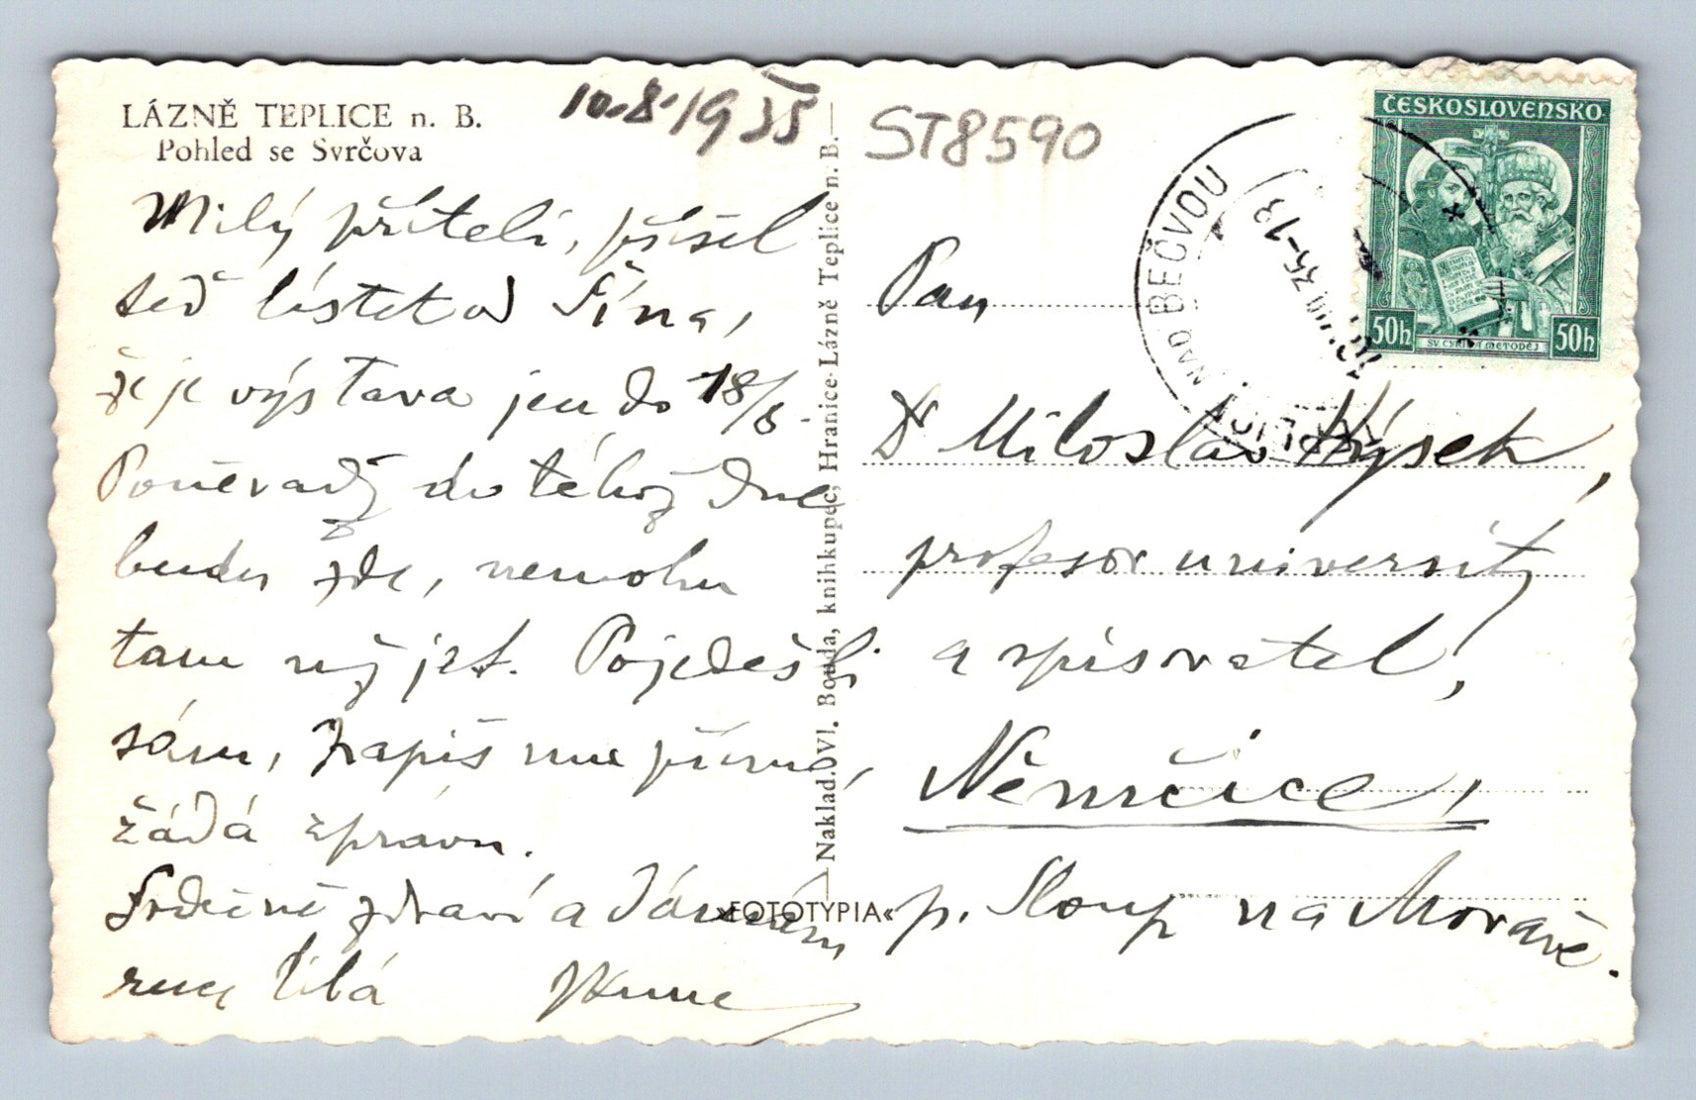 LÁZNĚ TEPLICE n. B.
Pohled se Svrčova
10.8.1935
ST8590
Milý příteli, přišel
teď lístek od Šíma,
že je výstava jen do 18/8.
Poněvadž do téhož dne
budu zde, nemohu
tam už jet. Pojedeš-li
sám, zapiš mne přímo,
žádá zprávu.
Srdečně zdraví a dámám
ruce líbá
Naklad. Vl. Bouda, knihkupec, Hranice-Lázně Teplice n. B.
»FOTOTYPIA«
ČESKOSLOVENSKO
50h
SV. CYRIL METODĚJ
50h
NAD BEČVOU
35-13
Pan
Dr Miloslav Hýsek,
profesor university
a spisovatel,
Němčice,
p. Sloup na Moravě.